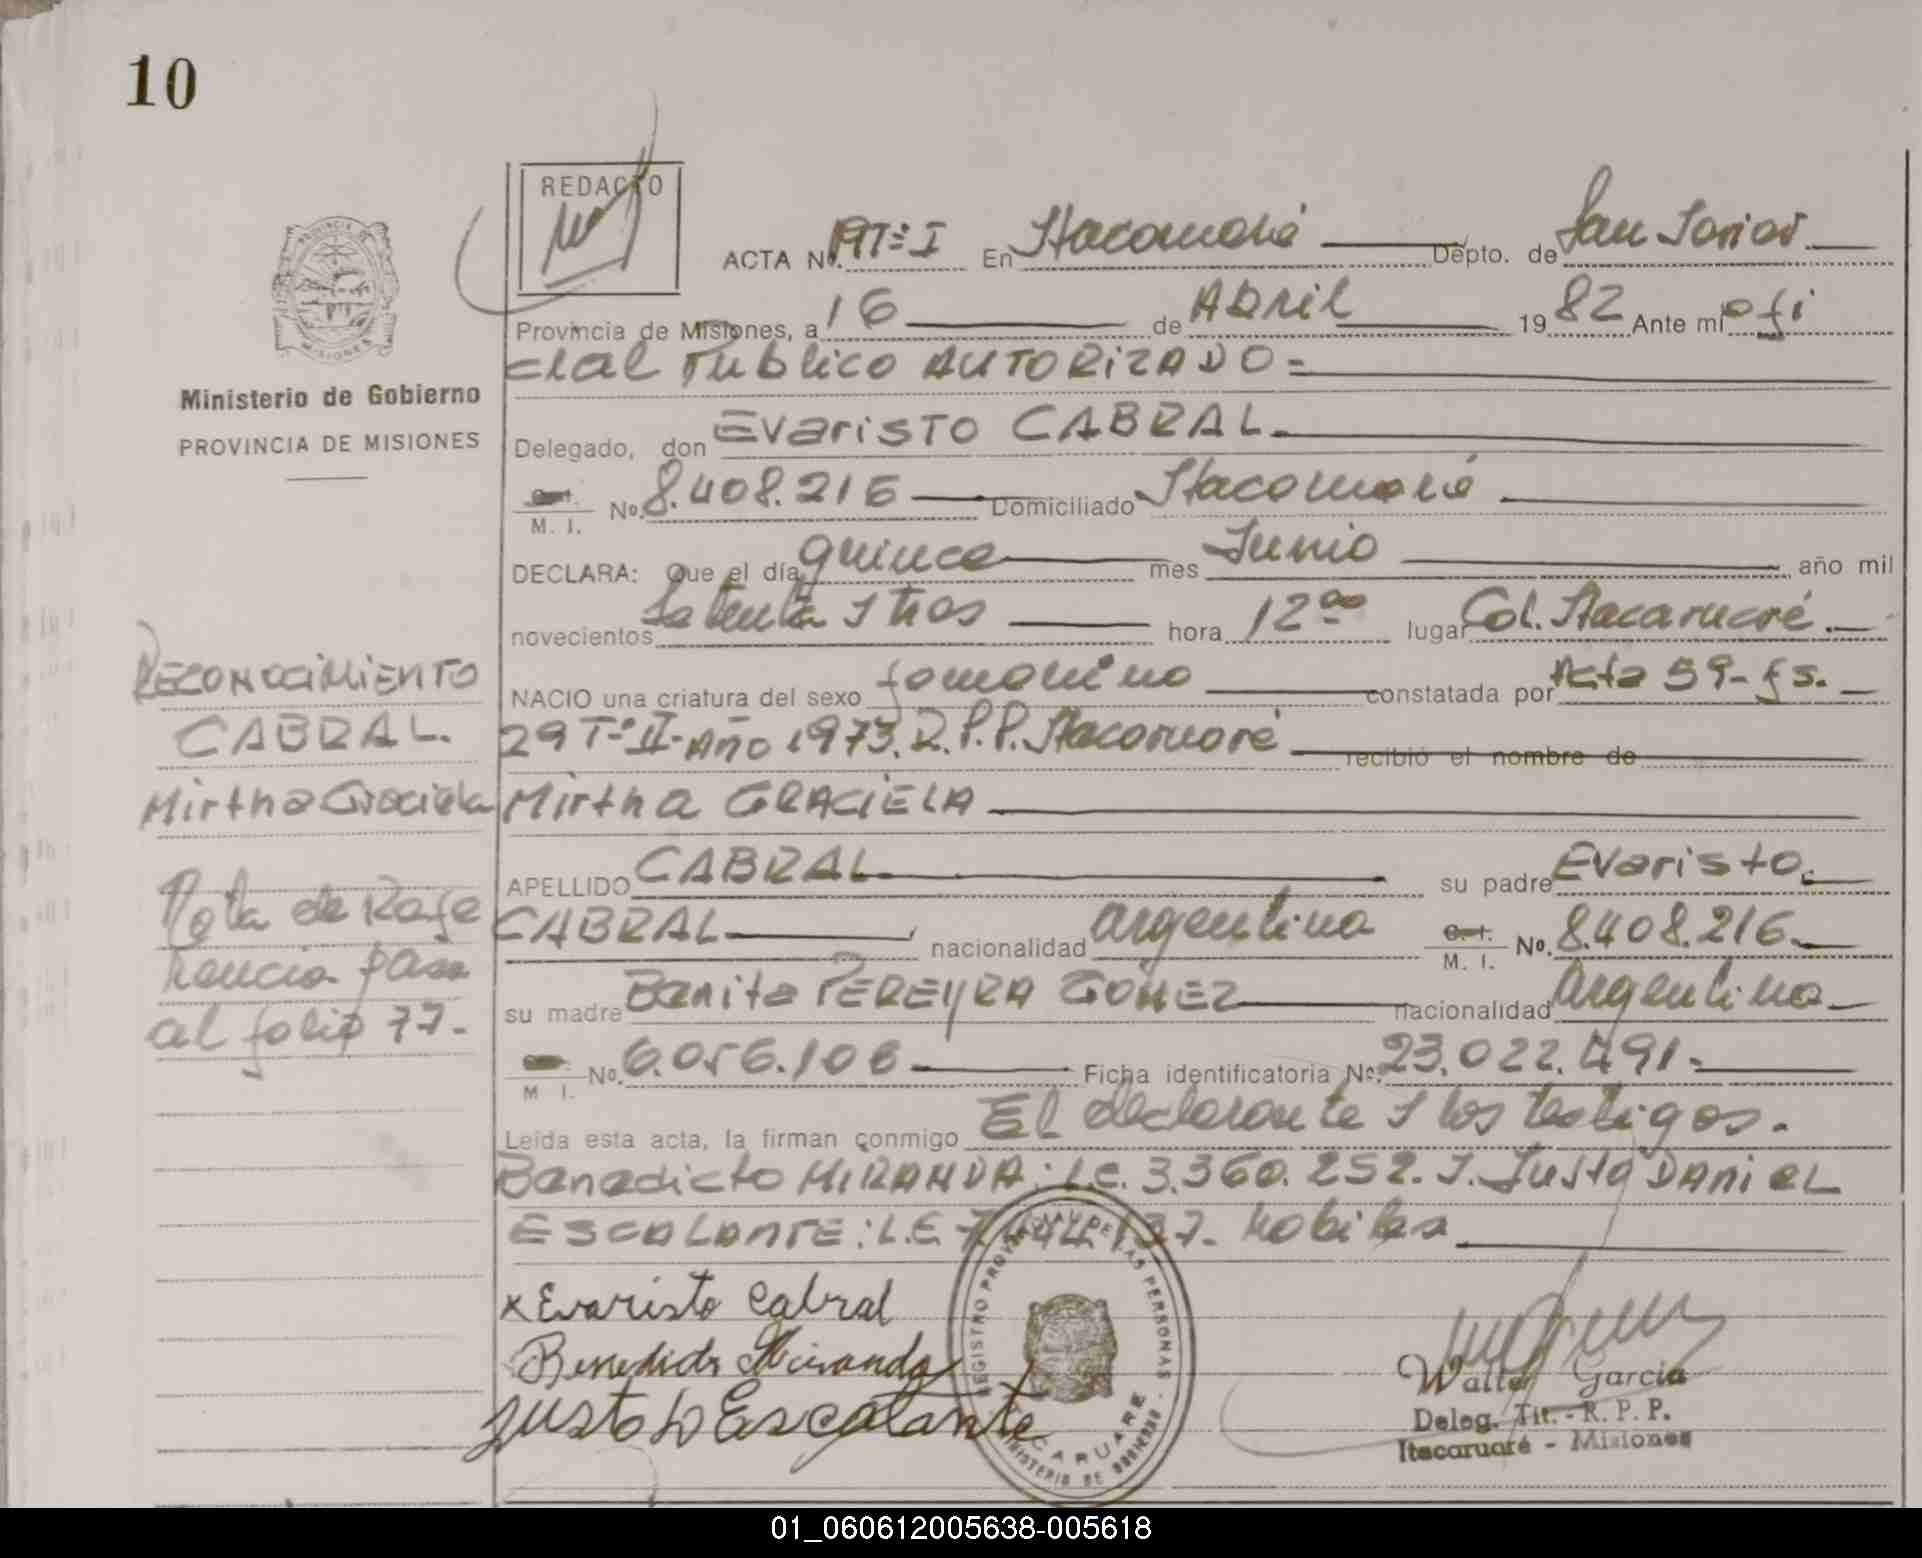 10
REDACTO
ACTA No. 19 Tº I En Itacaruaré Depto. de San Javier
Provincia de Misiones, a 16 de Abril 1982 Ante mí ofi
cial Publico AUTORIZADO=
Delegado, don Evaristo CABRAL
C. I. M. I. No. 8.408.216 Domiciliado Itacaruaré
DECLARA: Que el día quince mes Junio año mil
novecientos setenta y tres hora 12 00 lugar Col. Itacaruaré.
NACIO una criatura del sexo femenino constatada por Acta 59- fs.
29 Tº II- Año 1973. R.P.P. Itacaruaré recibió el nombre de
Mirtha GRACIELA
APELLIDO CABRAL su padre Evaristo
CABRAL nacionalidad argentina C. I. M. I. No. 8.408.216
su madre Benita PEREYRA GOMEZ nacionalidad argentina
M I. No. 6.056.106 Ficha identificatoria No. 23.022.491-
Leída esta acta, la firman conmigo El declarante y los testigos.
Benedicto MIRANDA: L.E. 3.360.252. y. Justo DANIEL
ESCALANTE: L.E 137- Hábiles
x Evaristo Cabral
Benedicto Miranda
Justo D Escalante
PROVINCIA DE MISIONES
Ministerio de Gobierno
PROVINCIA DE MISIONES
RECONOCIMIENTO
CABRAL.
Mirtha Graciela
Nota de Refe
rencia pasa
al folio 77-
REGISTRO PROVINCIAL DE LAS PERSONAS
ITACARUARE
MINISTERIO DE GOBIERNO
Walter Garcia
Deleg. Tit. - R. P. P.
Itacaruaré - Misiones
01_060612005638-005618